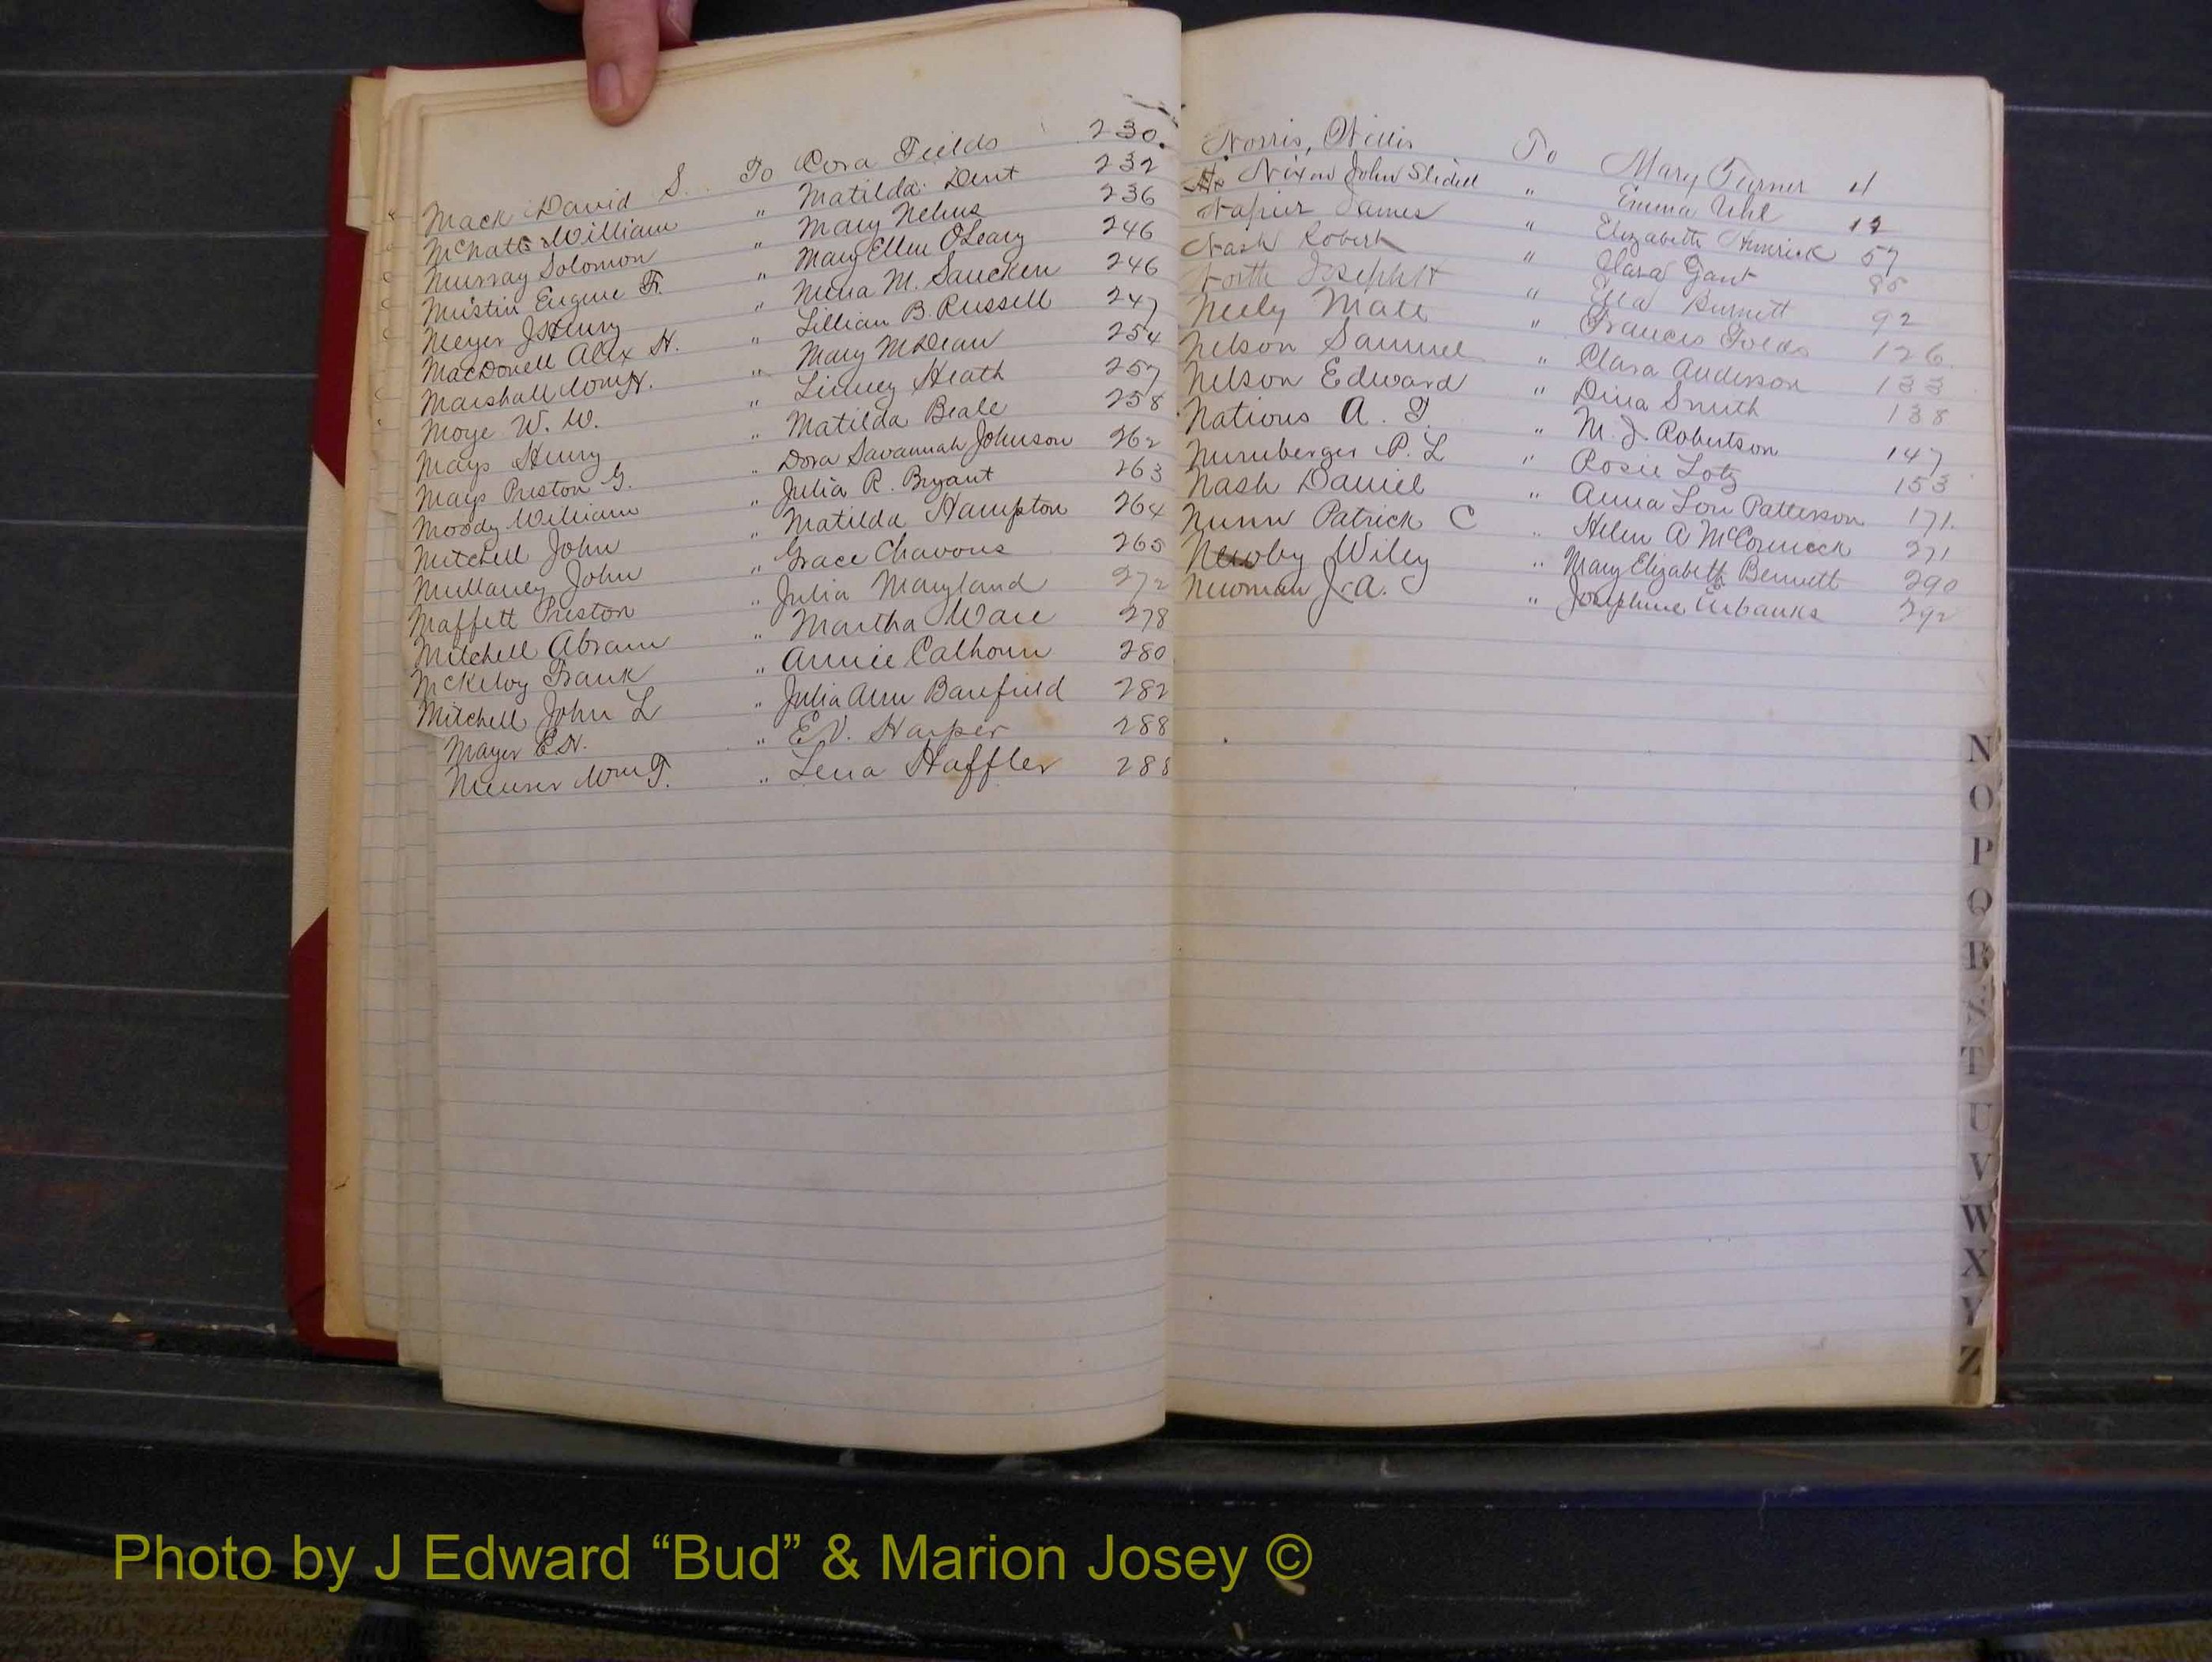 Mack David S. To Cora Fields 230.
McNatt William " Matilda Dent 232
Murray Solomon " Mary Nehus 236
Mustin Eugene F. " Mary Ellen O'Leary 246
Meyer J Henry " Mena M. Saucken 246
MacDonell Alex H. " Lillian B. Russell 247
Marshall Wm H. " Mary McDean 254
Moye W. W. " Linney Heath 257
Mays Henry " Matilda Beale 258
Mays Preston G. " Dora Savannah Johnson 262
Moody William " Julia R. Bryant 263
Mitchell John " Matilda Hampton 264
Mullaney John " Grace Chavous 265
Maffett Preston " Julia Maryland 272
Mitchell Abram " Martha Ware 278
McKelvy Frank " Annie Calhoun 280
Mitchell John L " Julia Ann Barefield 282
Mayer E.H. " E.V. Harper 288
Wm F. " Lena Haffler 288
Norris, Willis To Mary Turner 4
Nixon John Slidell " Emma Uhl 12
Napier James " Elizabeth 57
Nash Robert " Clara Gant
North Joseph H " Ella Burnett 92
Neely Matt " Frances Folds 126
Nelson Samuel " Clara Anderson 133
Nelson Edward " Dina Smith 138
Nations A. T. " M. J. Robertson 147
Nurnberger P. L " Rosie Lotz 153
Nash Daniel " Anna Lou Patterson 171.
Nunn Patrick C " Helen A McCormick 271
Newby Wiley " Mary Elizabeth Bennett 290
Newman J. A. " Josephine Eubanks 292
N
O
P
Q
R
S
T
U
V
W
X
Y
Z
Photo by J Edward “Bud” & Marion Josey ©